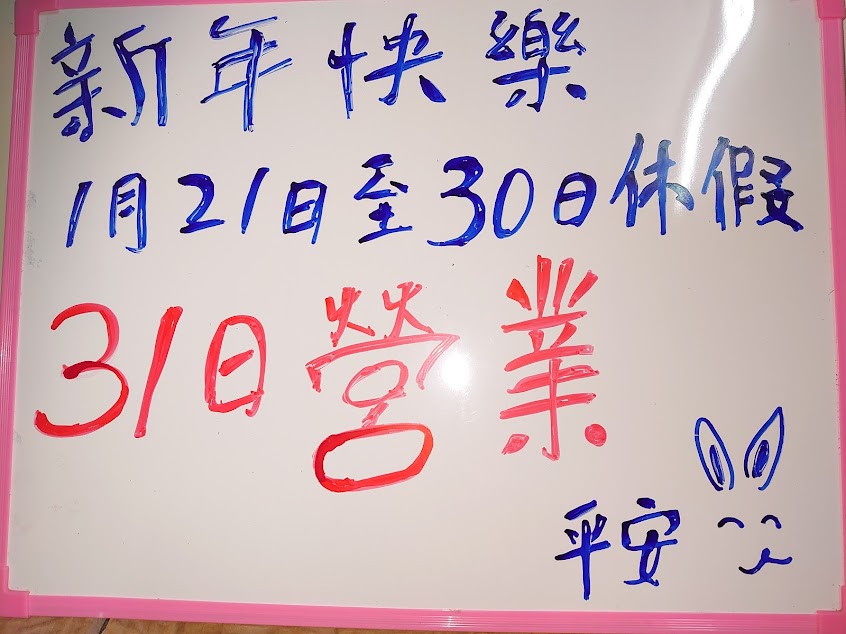 新年快樂
1月21日至30日休假
31日營業
平安